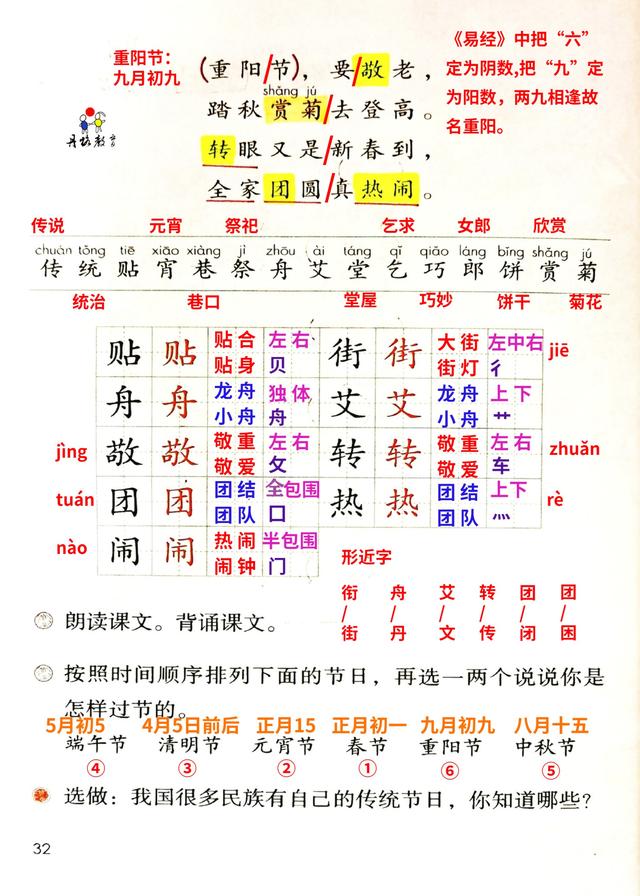 重阳节：
九月初九
(重阳/节)，要/敬老，
shǎng jú
踏秋赏菊/去登高。
转眼又是/新春到，
全家团圆/真热闹。
《易经》中把“六”
定为阴数,把“九”定
为阳数，两九相逢故
名重阳。
丹妈教育
传说 元宵 祭祀 乞求 女郎 欣赏
chuán tǒng tiē xiāo xiàng jì zhōu ài táng qǐ qiǎo láng bǐng shǎng jú
传 统 贴 宵 巷 祭 舟 艾 堂 乞 巧 郎 饼 赏 菊
统治 巷口 堂屋 巧妙 饼干 菊花
贴 贴 贴合 左右
贴身 贝
街 街 大街 左中右 jiē
街灯 彳
舟 舟 龙舟 独体
小舟 舟
艾 艾 龙舟 上下
小舟 艹
jìng 敬 敬 敬重 左右
敬爱 攵
转 转 敬重 左右 zhuǎn
敬爱 车
tuán 团 团 团结 全包围
团队 囗
热 热 团结 上下 rè
团队 灬
nào 闹 闹 热闹 半包围
闹钟 门
形近字
衔 舟 艾 转 团 团
/ / / / / /
街 丹 文 传 闭 困
朗读课文。背诵课文。
按照时间顺序排列下面的节日，再选一两个说说你是
怎样过节的。
5月初5 4月5日前后 正月15 正月初一 九月初九 八月十五
端午节 清明节 元宵节 春节 重阳节 中秋节
④ ③ ② ① ⑥ ⑤
选做：我国很多民族有自己的传统节日，你知道哪些？
32